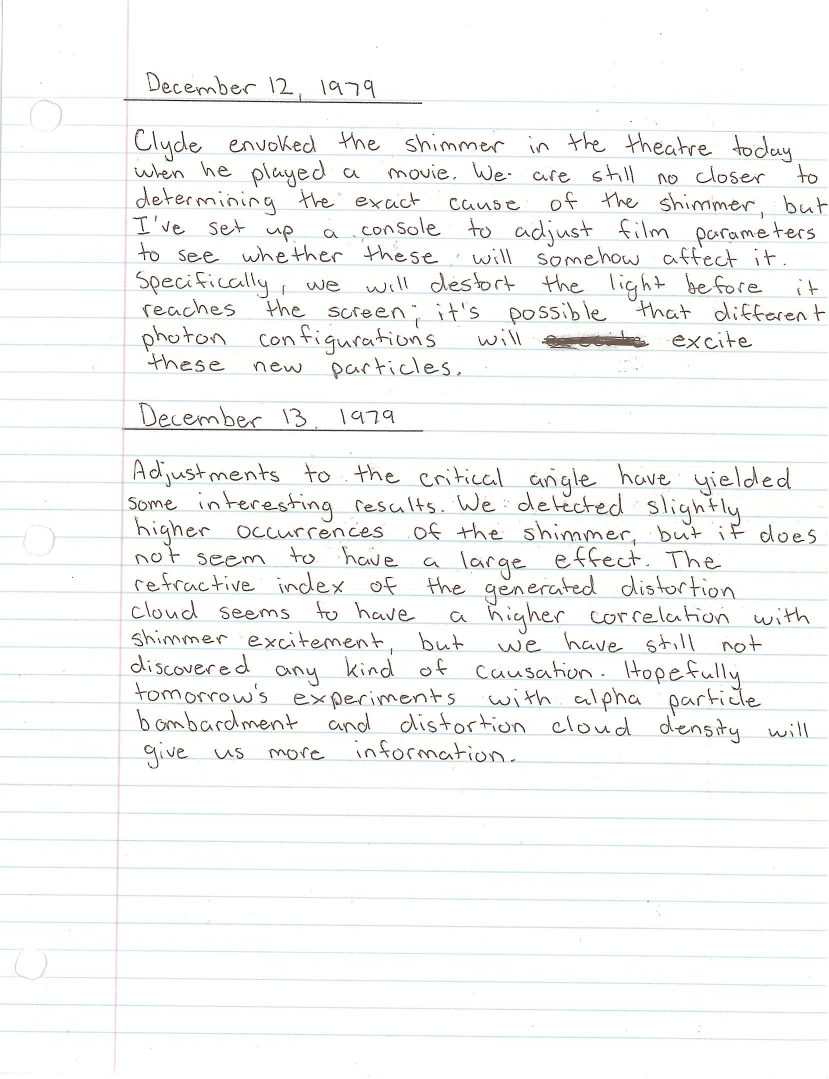 December 12, 1979
Clyde envoked the shimmer in the theatre today
when he played a movie. We are still no closer to
determining the exact cause of the shimmer, but
I've set up a console to adjust film parameters
to see whether these will somehow affect it.
Specifically, we will destort the light before it
reaches the screen; it's possible that different
photon configurations will excite
these new particles.
December 13, 1979
Adjustments to the critical angle have yielded
some interesting results. We detected slightly
higher occurrences of the shimmer, but it does
not seem to have a large effect. The
refractive index of the generated distortion
cloud seems to have a higher correlation with
shimmer excitement, but we have still not
discovered any kind of causation. Hopefully
tomorrow's experiments with alpha particle
bombardment and distortion cloud density will
give us more information.